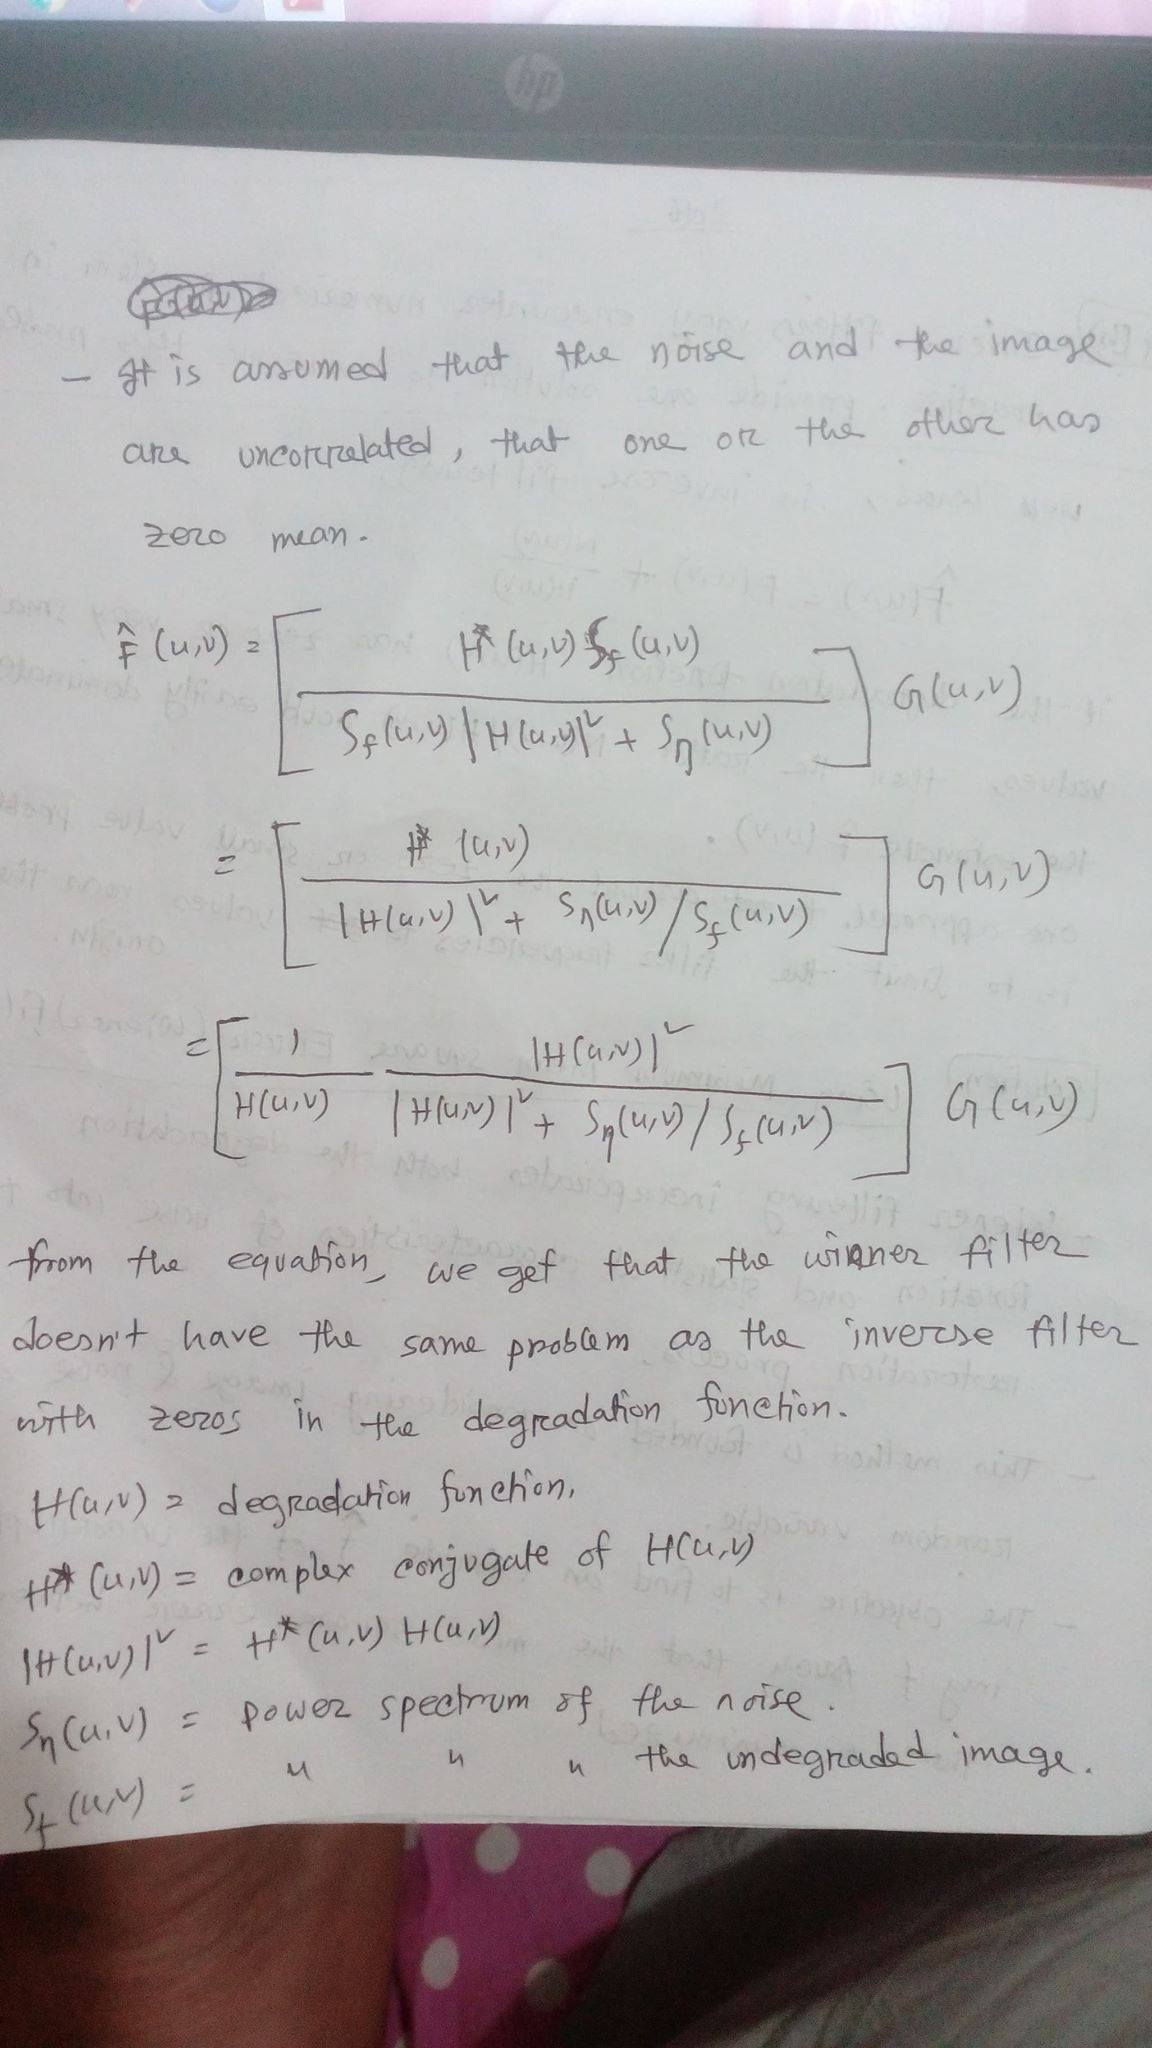 hp
- It is assumed that the noise and the image
are uncorrelated, that one or the other has
zero mean.
F̂(u,v) = [ H*(u,v) S_f(u,v) / S_f(u,v) |H(u,v)|² + S_η(u,v) ] G(u,v)
= [ H*(u,v) / |H(u,v)|² + S_η(u,v)/S_f(u,v) ] G(u,v)
= [ 1 / H(u,v) |H(u,v)|² / |H(u,v)|² + S_η(u,v)/S_f(u,v) ] G(u,v)
from the equation, we get that the winner filter
doesn't have the same problem as the inverse filter
with zeros in the degradation function.
H(u,v) = degradation function,
H*(u,v) = complex conjugate of H(u,v)
|H(u,v)|² = H*(u,v) H(u,v)
S_η(u,v) = power spectrum of the noise.
S_f(u,v) = " " " the undegraded image.